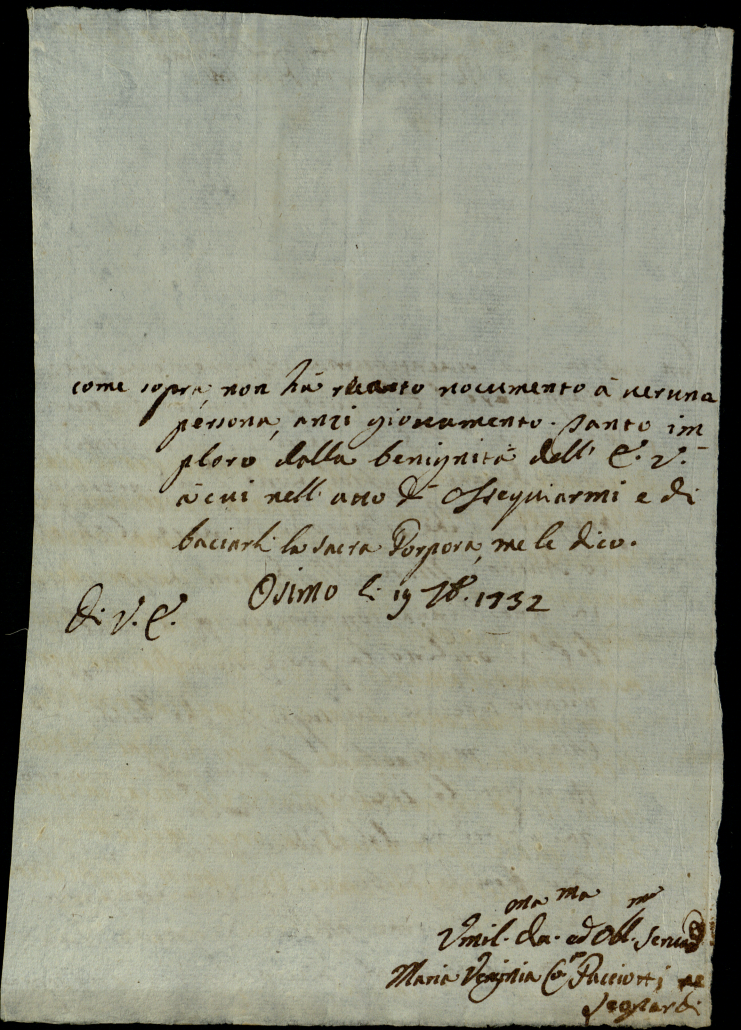 come sopra, non hà recato nocumento à veruna
persona, anzi giovamento. Tanto im
ploro dalla benignità dell' E. V.
à cui nell' atto di ossequiarmi e di
baciarli la sacra Porpora, me le dico.
Osimo li 19 1732
Di V. E.
ma ma
Umil. Dev. ed Obl. Serva
Maria Virginia Pacciotti